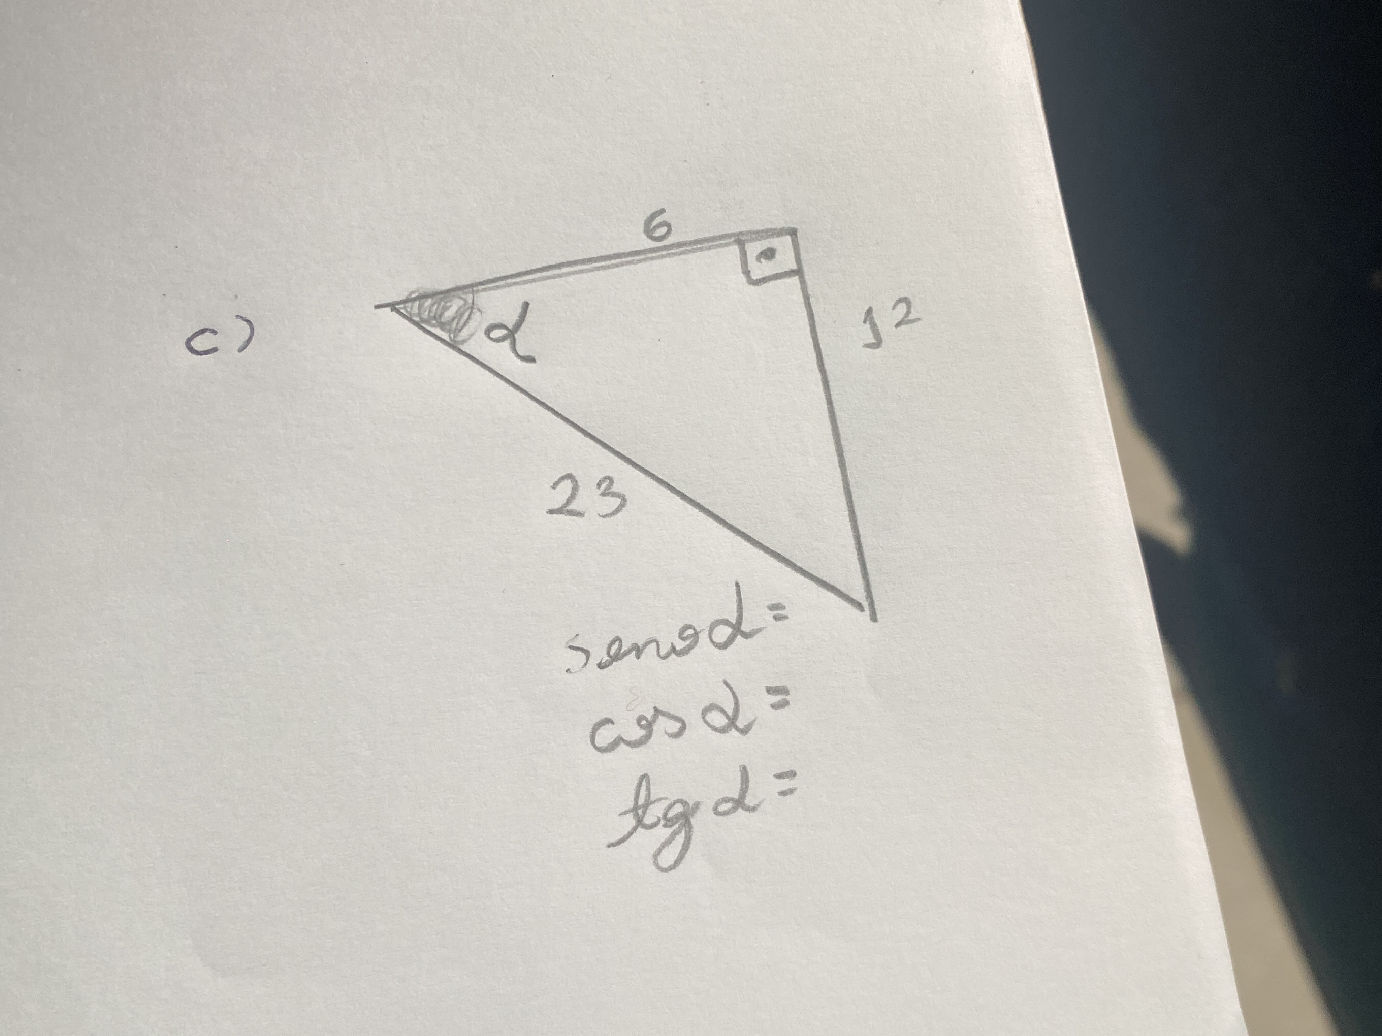 6
c)
α
12
23
seno α=
cos α=
tg α=